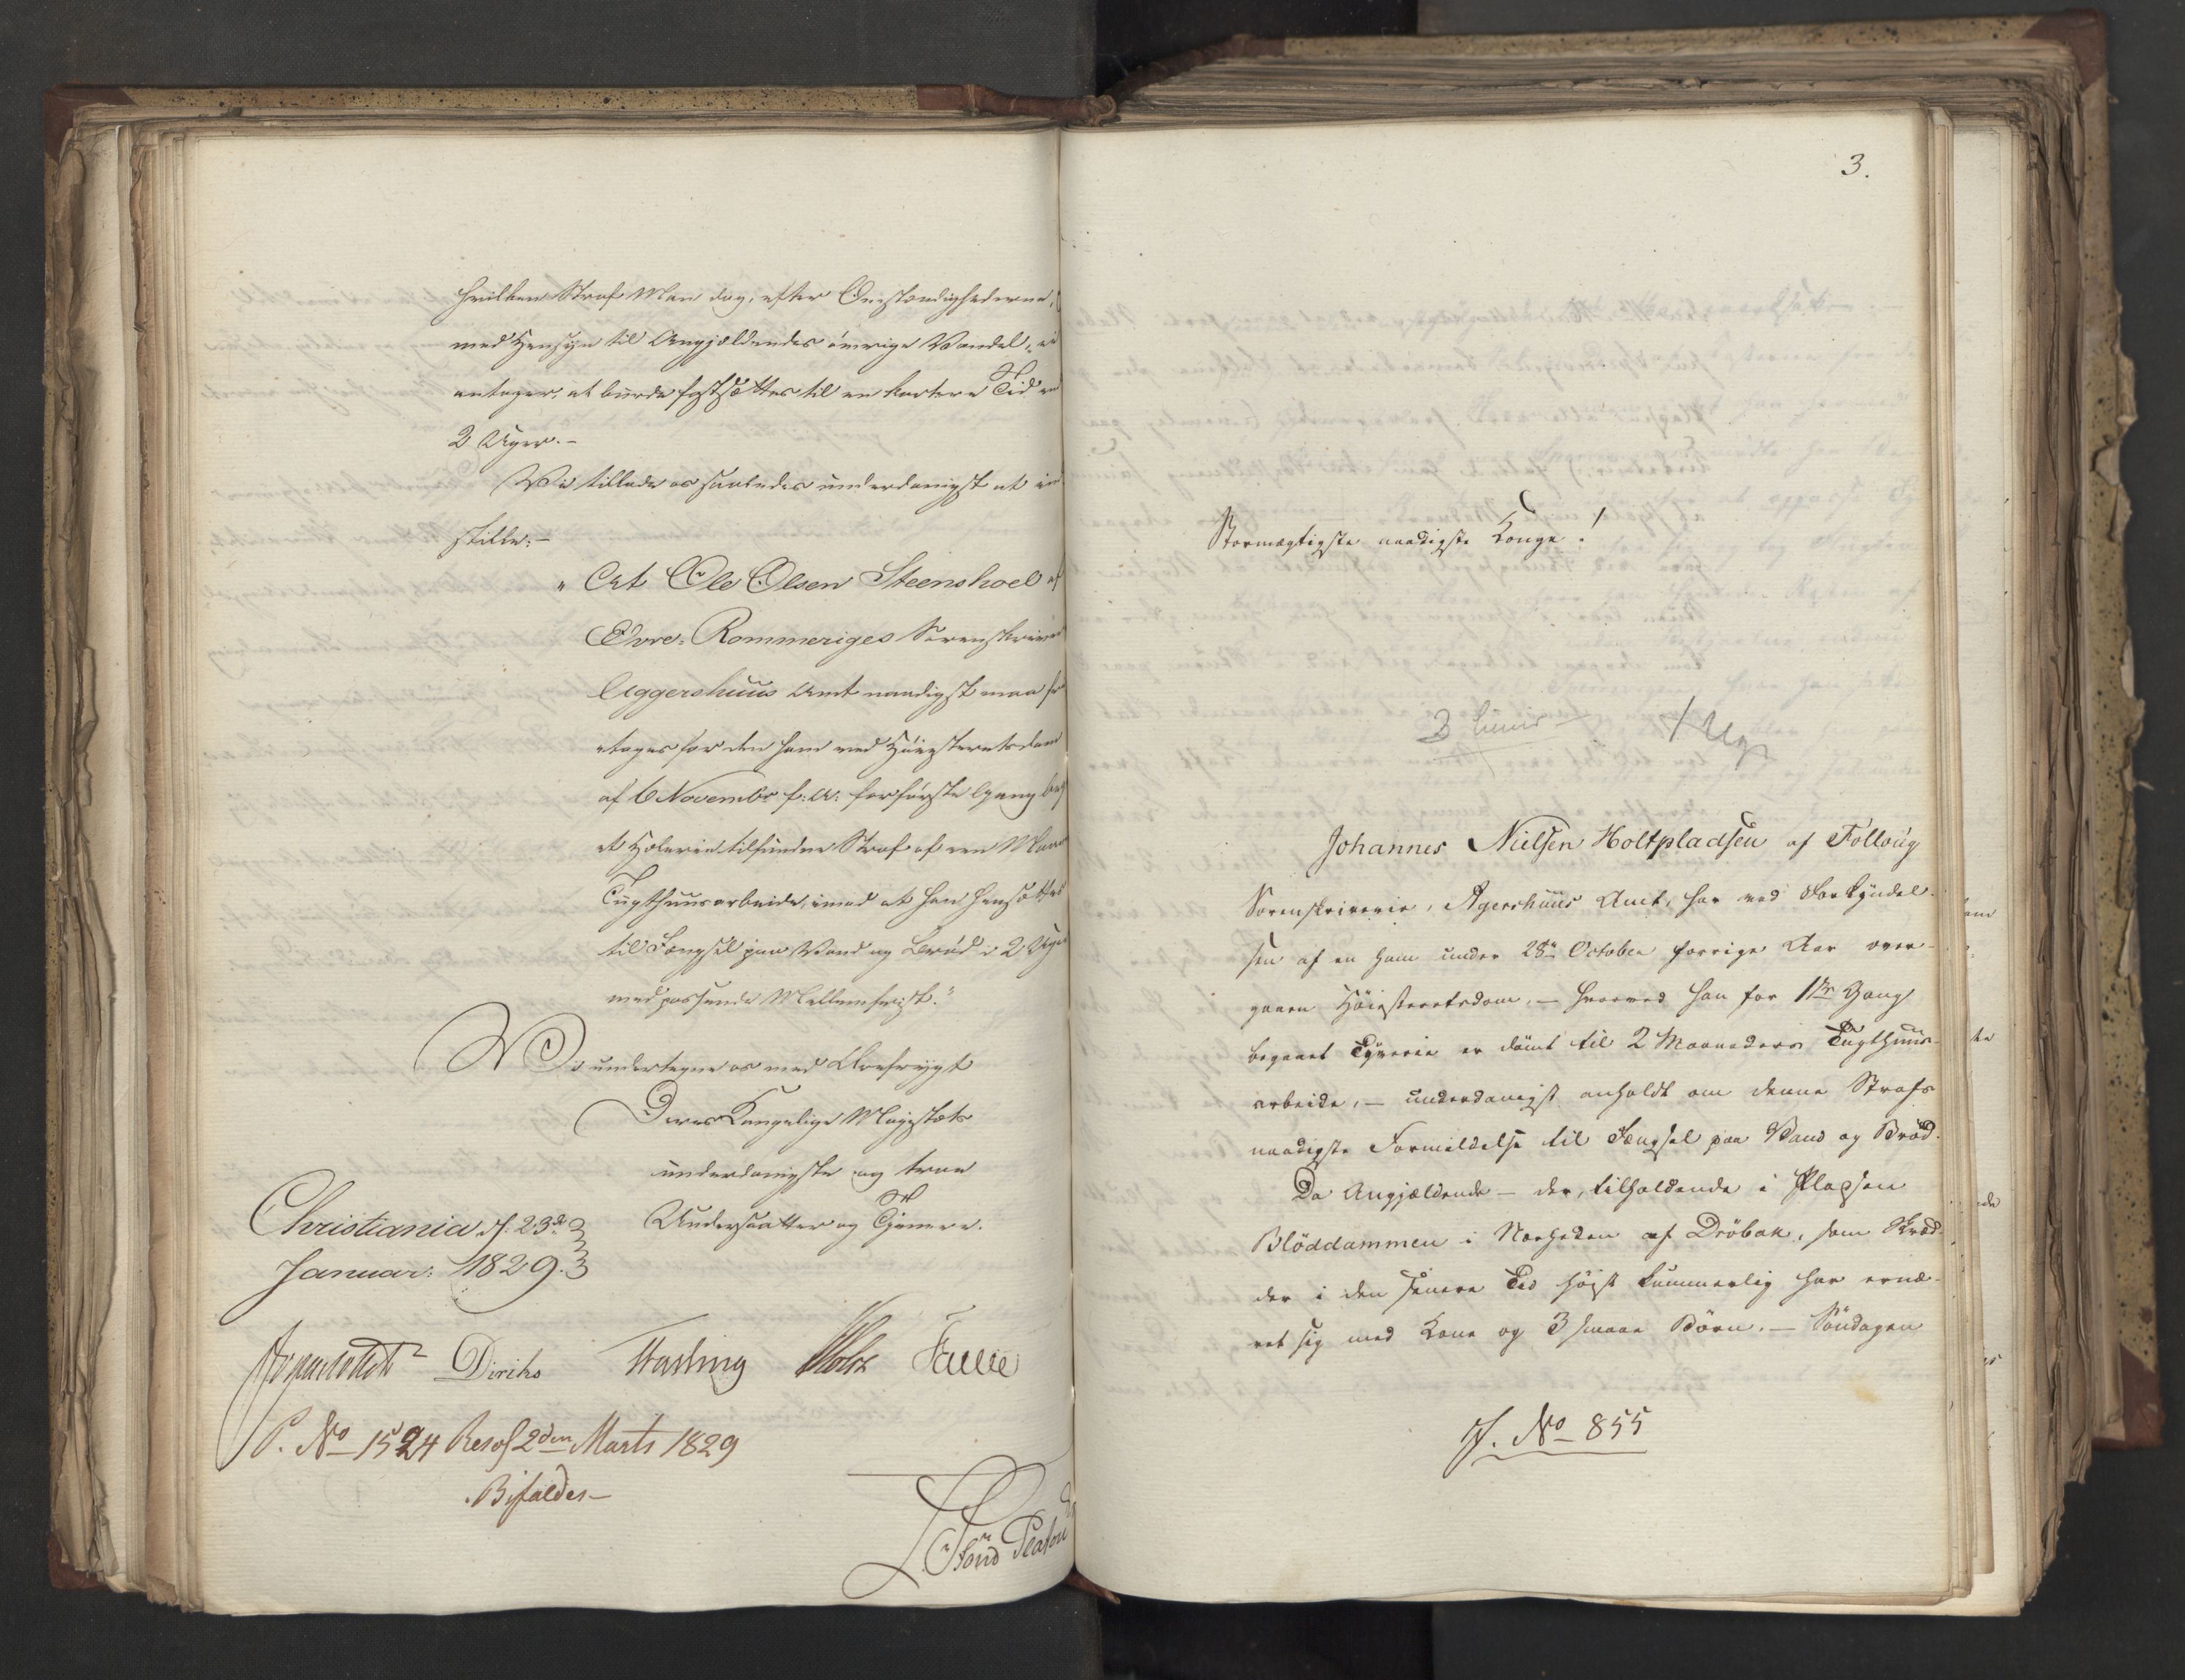 hvilken Straf Man dog, efter Omstændighederne,
med Hensyn til Angjældendes övrige Vandel, ei
antager, at burde fastsættes til en kortere Tid en
2 Uger.-
Vi tillade os saaledes underdanigst at ind
stille:-
" At Ole Olsen Steenshoel af
Övre-Rommeriges Sorenskriver
Aggershuus Amt naadigst maa fri
tages for den ham ved Höiesteretsdom
af 6 Novembr f: A: for förste Gang beg
et Heleri tilfundne Straf af een Maan
Tugthuusarbeide, imod at han hensættes
til Fængsel paa Vand og Bröd i 2 Uger
med passende Mellemfrist."
Vi undertegne os med Ærefrygt
Deres Kongelige Majestæts
underdanigste og troe
Undersaatter og Tjenere.
Christiania d. 23de
Januar: 1829.
Diriks
P. No 1524 Resol 2den Marts 1829
Bifaldes-
3.
Stormægtigste naadigste Konge!
Johannes Nielsen Holtpladsen af Folloug
Sorenskriverie, Agershuus Amt, har ved Forkyndel-
sen af en ham under 28de October forrige Aar over-
gaaen Höiesteretsdom, - hvorved han for 1ste Gang
begaaet Tyverie er dömt til 2 Maaneders Tugthuus-
arbeide, - underdanigst anholdt om denne Strafs
naadigste Formildelse til Fængsel paa Vand og Bröd.
Da Angjældende - der, tilholdende i Pladsen
Blöddammen i Nærheden af Dröbak, som Skræd-
der i den senere Tid höist kummerlig har ernæ-
ret sig med Kone og 3 smaae Börn. - Söndagen
J. No 855